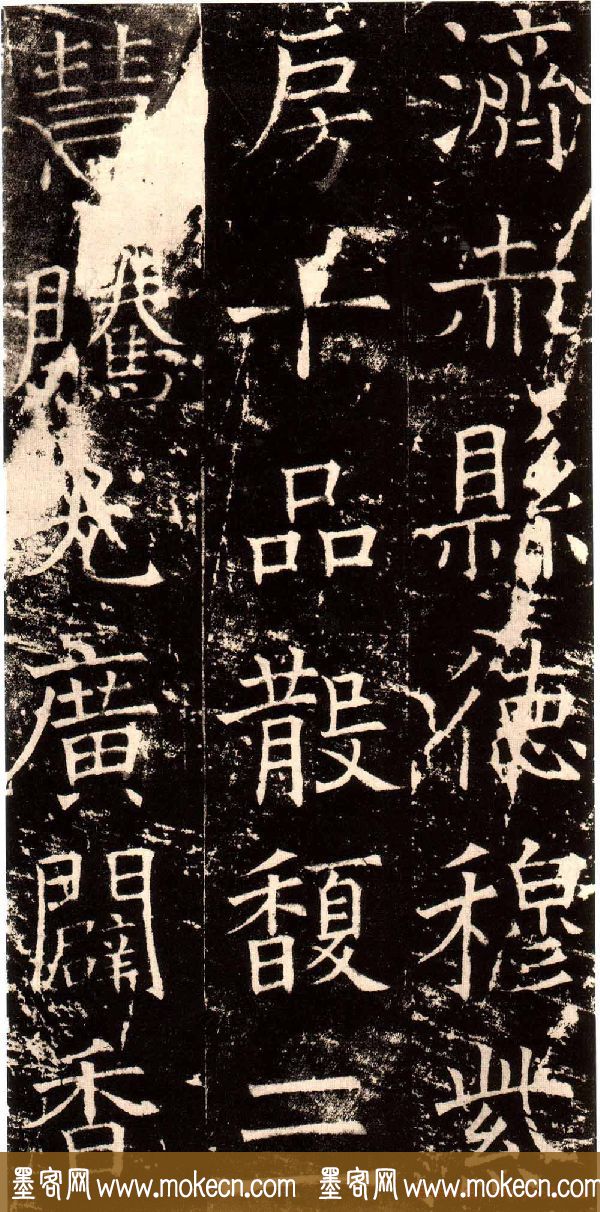 濟赤縣德穆紫
房十品散馥二
慧騰光廣闢香
墨客网 www.mokecn.com 墨客网 www.mokecn.com